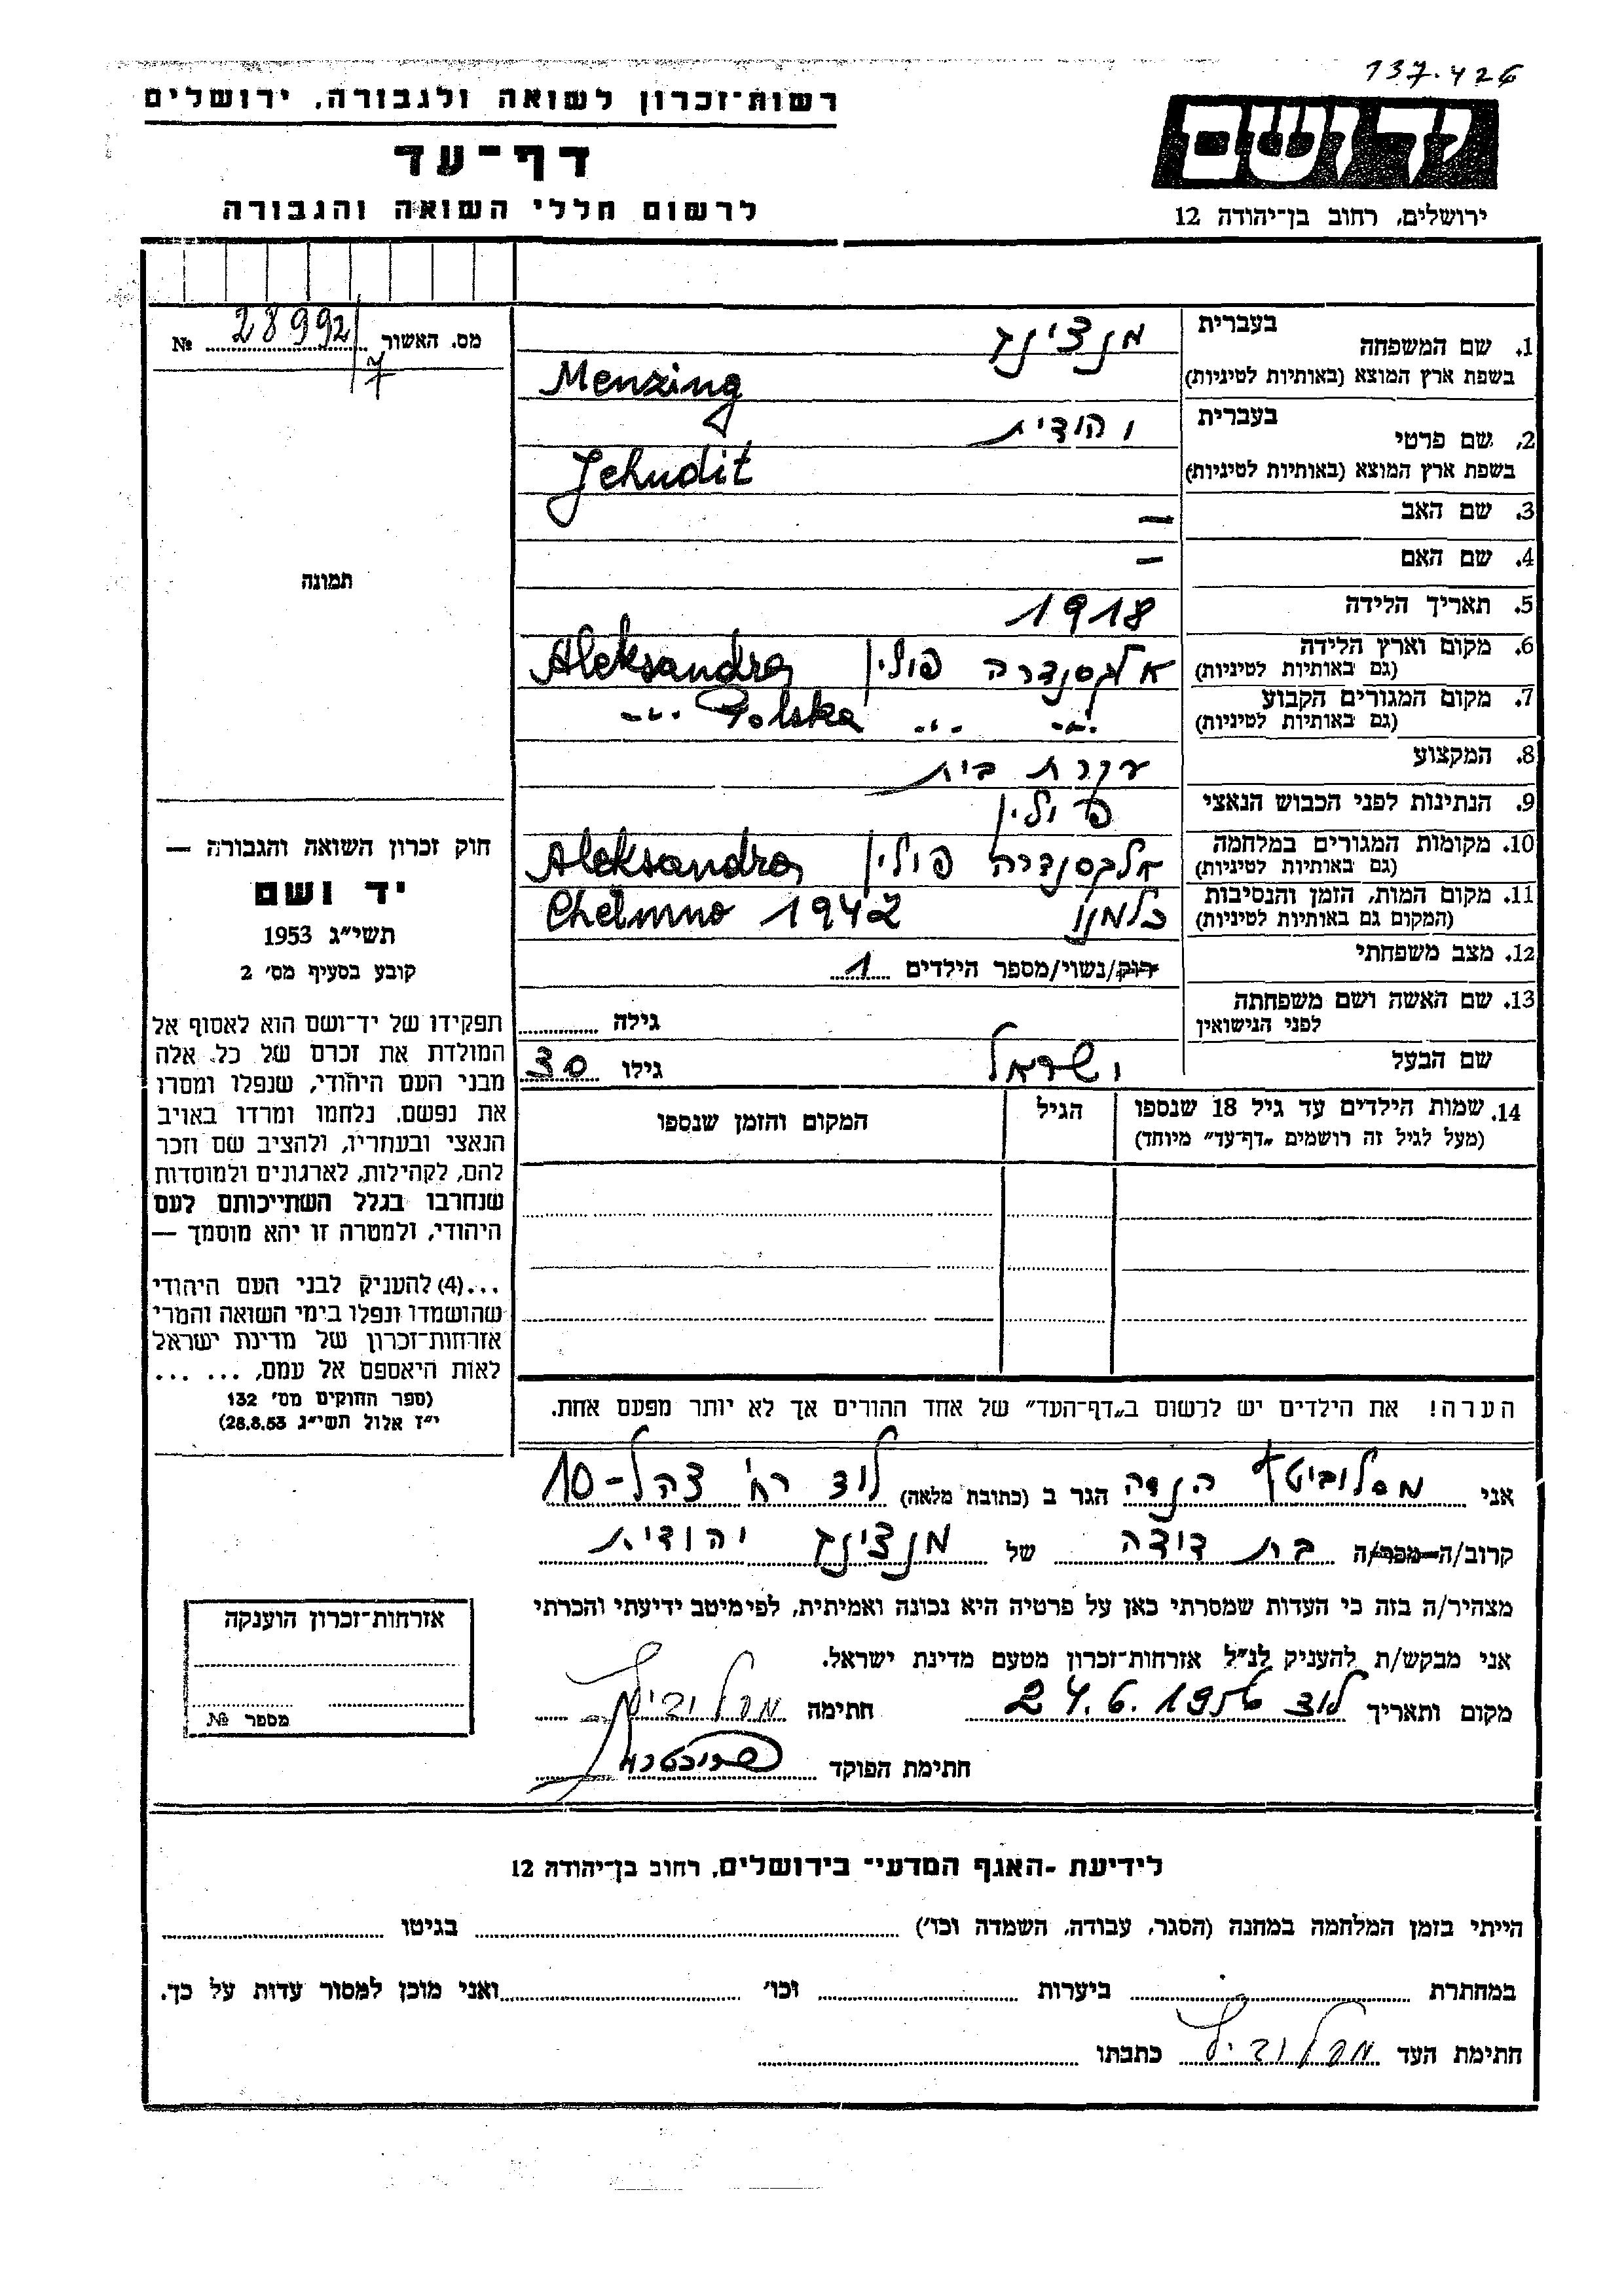 137.426
רשות־זכרון לשואה ולגבורה, ירושלים
דף־עד
לרשום חללי השואה והגבורה
יד ושם
ירושלים, רחוב בן־יהודה 12
מס. האשור 28992/7 №
תמונה
חוק זכרון השואה והגבורה —
יד ושם
תשי״ג 1953
קובע בסעיף מס׳ 2
תפקידו של יד־ושם הוא לאסוף אל
המולדת את זכרם של כל אלה
מבני העם היהודי, שנפלו ומסרו
את נפשם, נלחמו ומרדו באויב
הנאצי ובעוזריו, ולהציב שם וזכר
להם, לקהילות, לארגונים ולמוסדות
שנחרבו בגלל השתייכותם לעם
היהודי, ולמטרה זו יהא מוסמך —
...(4) להעניק לבני העם היהודי
שהושמדו ונפלו בימי השואה והמרי
אזרחות־זכרון של מדינת ישראל
לאות היאספם אל עמם, ... ...
(ספר החוקים מס׳ 132
י״ז אלול תשי״ג 28.8.53)
1. שם המשפחה בעברית מנצינג
בשפת ארץ המוצא (באותיות לטיניות) Menzing
2. שם פרטי בעברית יהודית
בשפת ארץ המוצא (באותיות לטיניות) Jehudit
3. שם האב —
4. שם האם —
5. תאריך הלידה 1918
6. מקום וארץ הלידה אלכסנדרה פולין Aleksandra
(גם באותיות לטיניות)
7. מקום המגורים הקבוע -"- -"- Polska -"-
(גם באותיות לטיניות)
8. המקצוע עקרת בית
9. הנתינות לפני הכבוש הנאצי פולין
10. מקומות המגורים במלחמה אלכסנדרה פולין Aleksandra
(גם באותיות לטיניות)
11. מקום המות, הזמן והנסיבות כלמנו Chelmno 1942
(המקום גם באותיות לטיניות)
12. מצב משפחתי רווק/נשוי/מספר הילדים 1
13. שם האשה ושם משפחתה
לפני הנישואין גילה
שם הבעל ישראל גילו 30
14. שמות הילדים עד גיל 18 שנספו הגיל המקום והזמן שנספו
(מעל לגיל זה רושמים „דף־עד״ מיוחד)
הערה! את הילדים יש לרשום ב„דף־העד״ של אחד ההורים אך לא יותר מפעם אחת.
אני מסלוביטץ הנדה הגר ב (כתובת מלאה) לוד רח׳ צהל-10
קרוב/ה מכר/ה בת דודה של מנצינג יהודית
מצהיר/ה בזה כי העדות שמסרתי כאן על פרטיה היא נכונה ואמיתית, לפי מיטב ידיעתי והכרתי
אני מבקש/ת להעניק לנ״ל אזרחות־זכרון מטעם מדינת ישראל.
מקום ותאריך לוד 24.6.1956 חתימה
חתימת הפוקד
אזרחות־זכרון הוענקה
מספר №
לידיעת -האגף המדעי־ בירושלים, רחוב בן־יהודה 12
הייתי בזמן המלחמה במחנה (הסגר, עבודה, השמדה וכו׳) בגיטו
במחתרת ביערות וכו׳ ואני מוכן למסור עדות על כך.
חתימת העד כתבתו